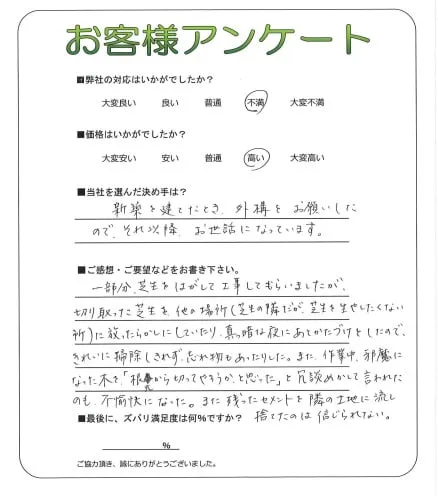 お客様アンケート
■弊社の対応はいかがでしたか？
大変良い 良い 普通 不満 大変不満
■価格はいかがでしたか？
大変安い 安い 普通 高い 大変高い
■当社を選んだ決め手は？
新築を建てたとき、外構をお願いした
ので、それ以降、お世話になっています。
■ご感想・ご要望などをお書き下さい。
一部分、芝生をはがして工事してもらいましたが、
切り取った芝生を、他の場所(芝生の隣だが、芝生を生やしたくない
所)に放ったらかしにしていたり、真っ暗な夜にあとかたづけをしたので、
きれいに掃除しきれず、忘れ物もあったりした。また、作業中、邪魔に
なった木を、「根元から切ってやろうか、と思った」と冗談めかして言われた
のも、不愉快になった。また残ったセメントを隣の土地に流し
捨てたのは信じられない。
■最後に、ズバリ満足度は何%ですか？
%
ご協力頂き、誠にありがとうございました。